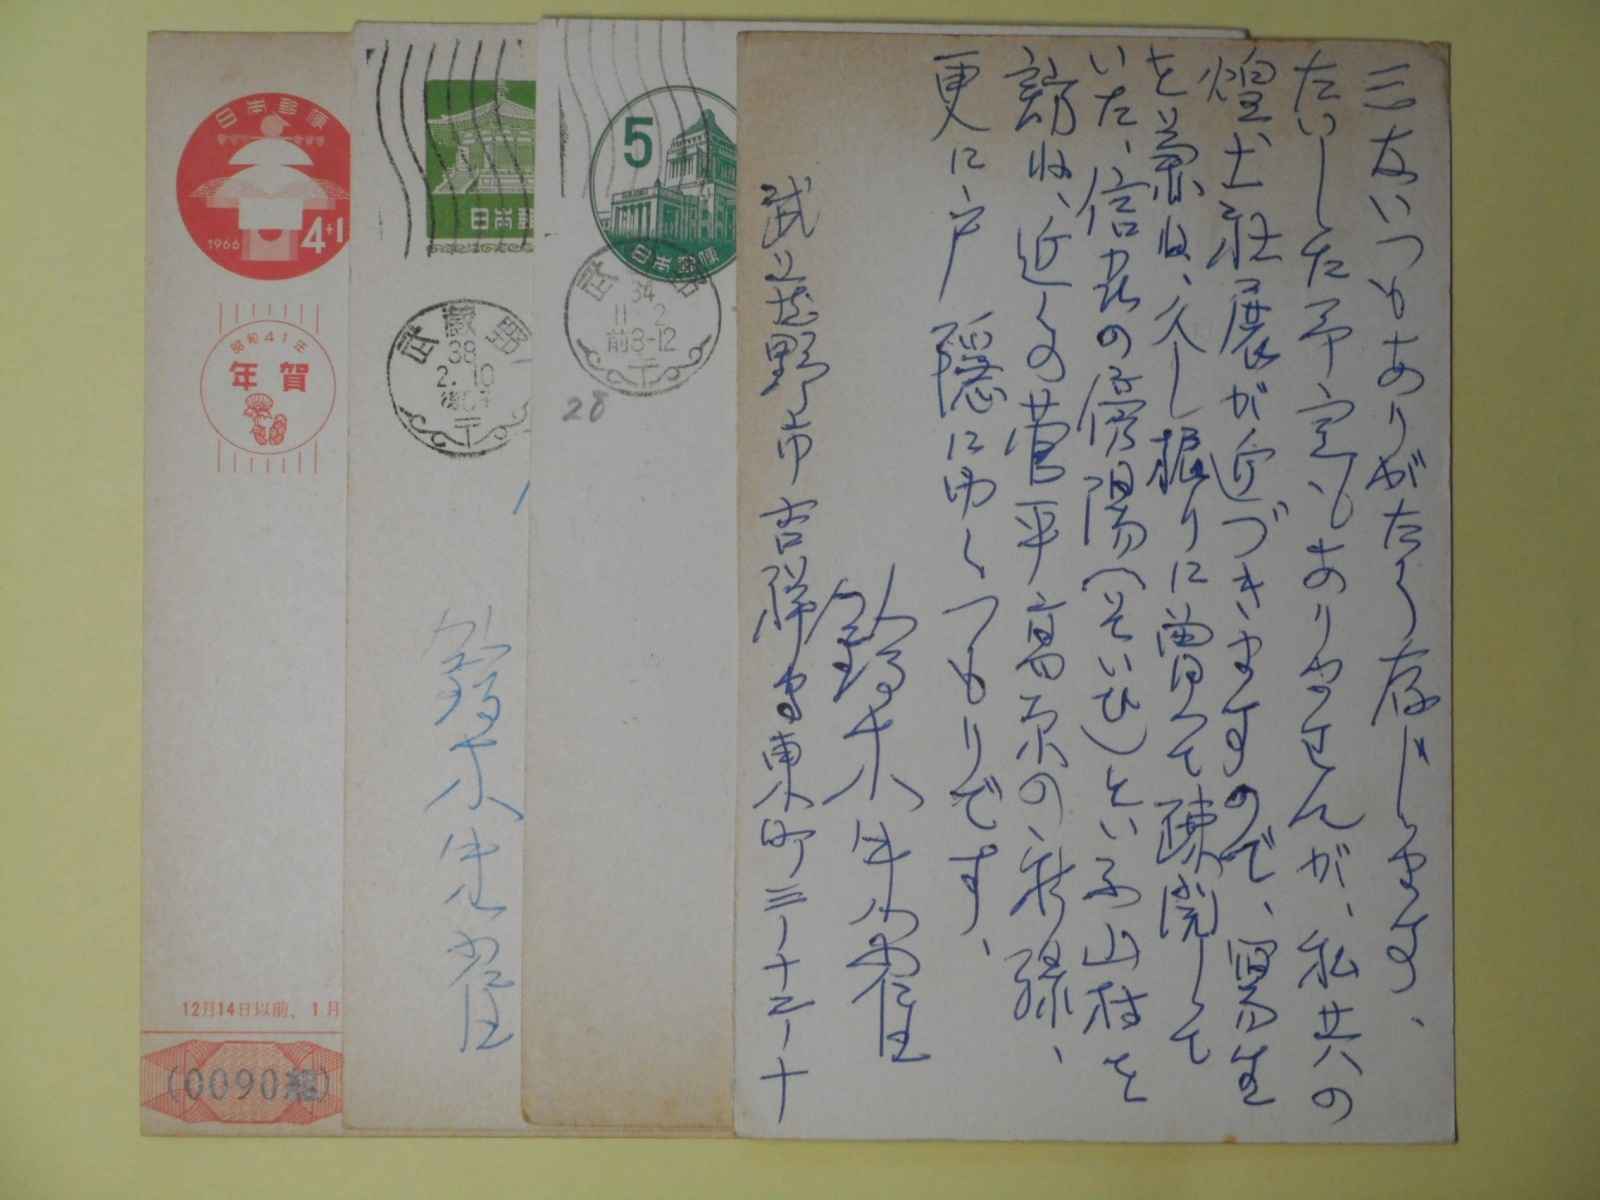 三友いつもありがたく存じます、
たいした予定もありませんが、私共の
煌土社展が近づきますので、写生
を兼ね、久し振りに曽つて疎開して
いた、信州の傍陽(そいひ)といふ山村を
訪ね、近くの菅平高原の新緑、
更に戸隠にゆくつもりです、
鈴木
武蔵野市吉祥寺東町三ー十三ー十
5
日本郵便
34
11-2
前8-12
28
日本郵
武蔵野
38
2.10
鈴木生
日本郵便
1966
4+1
昭和41年
年賀
12月14日以前、1月
(0090組)